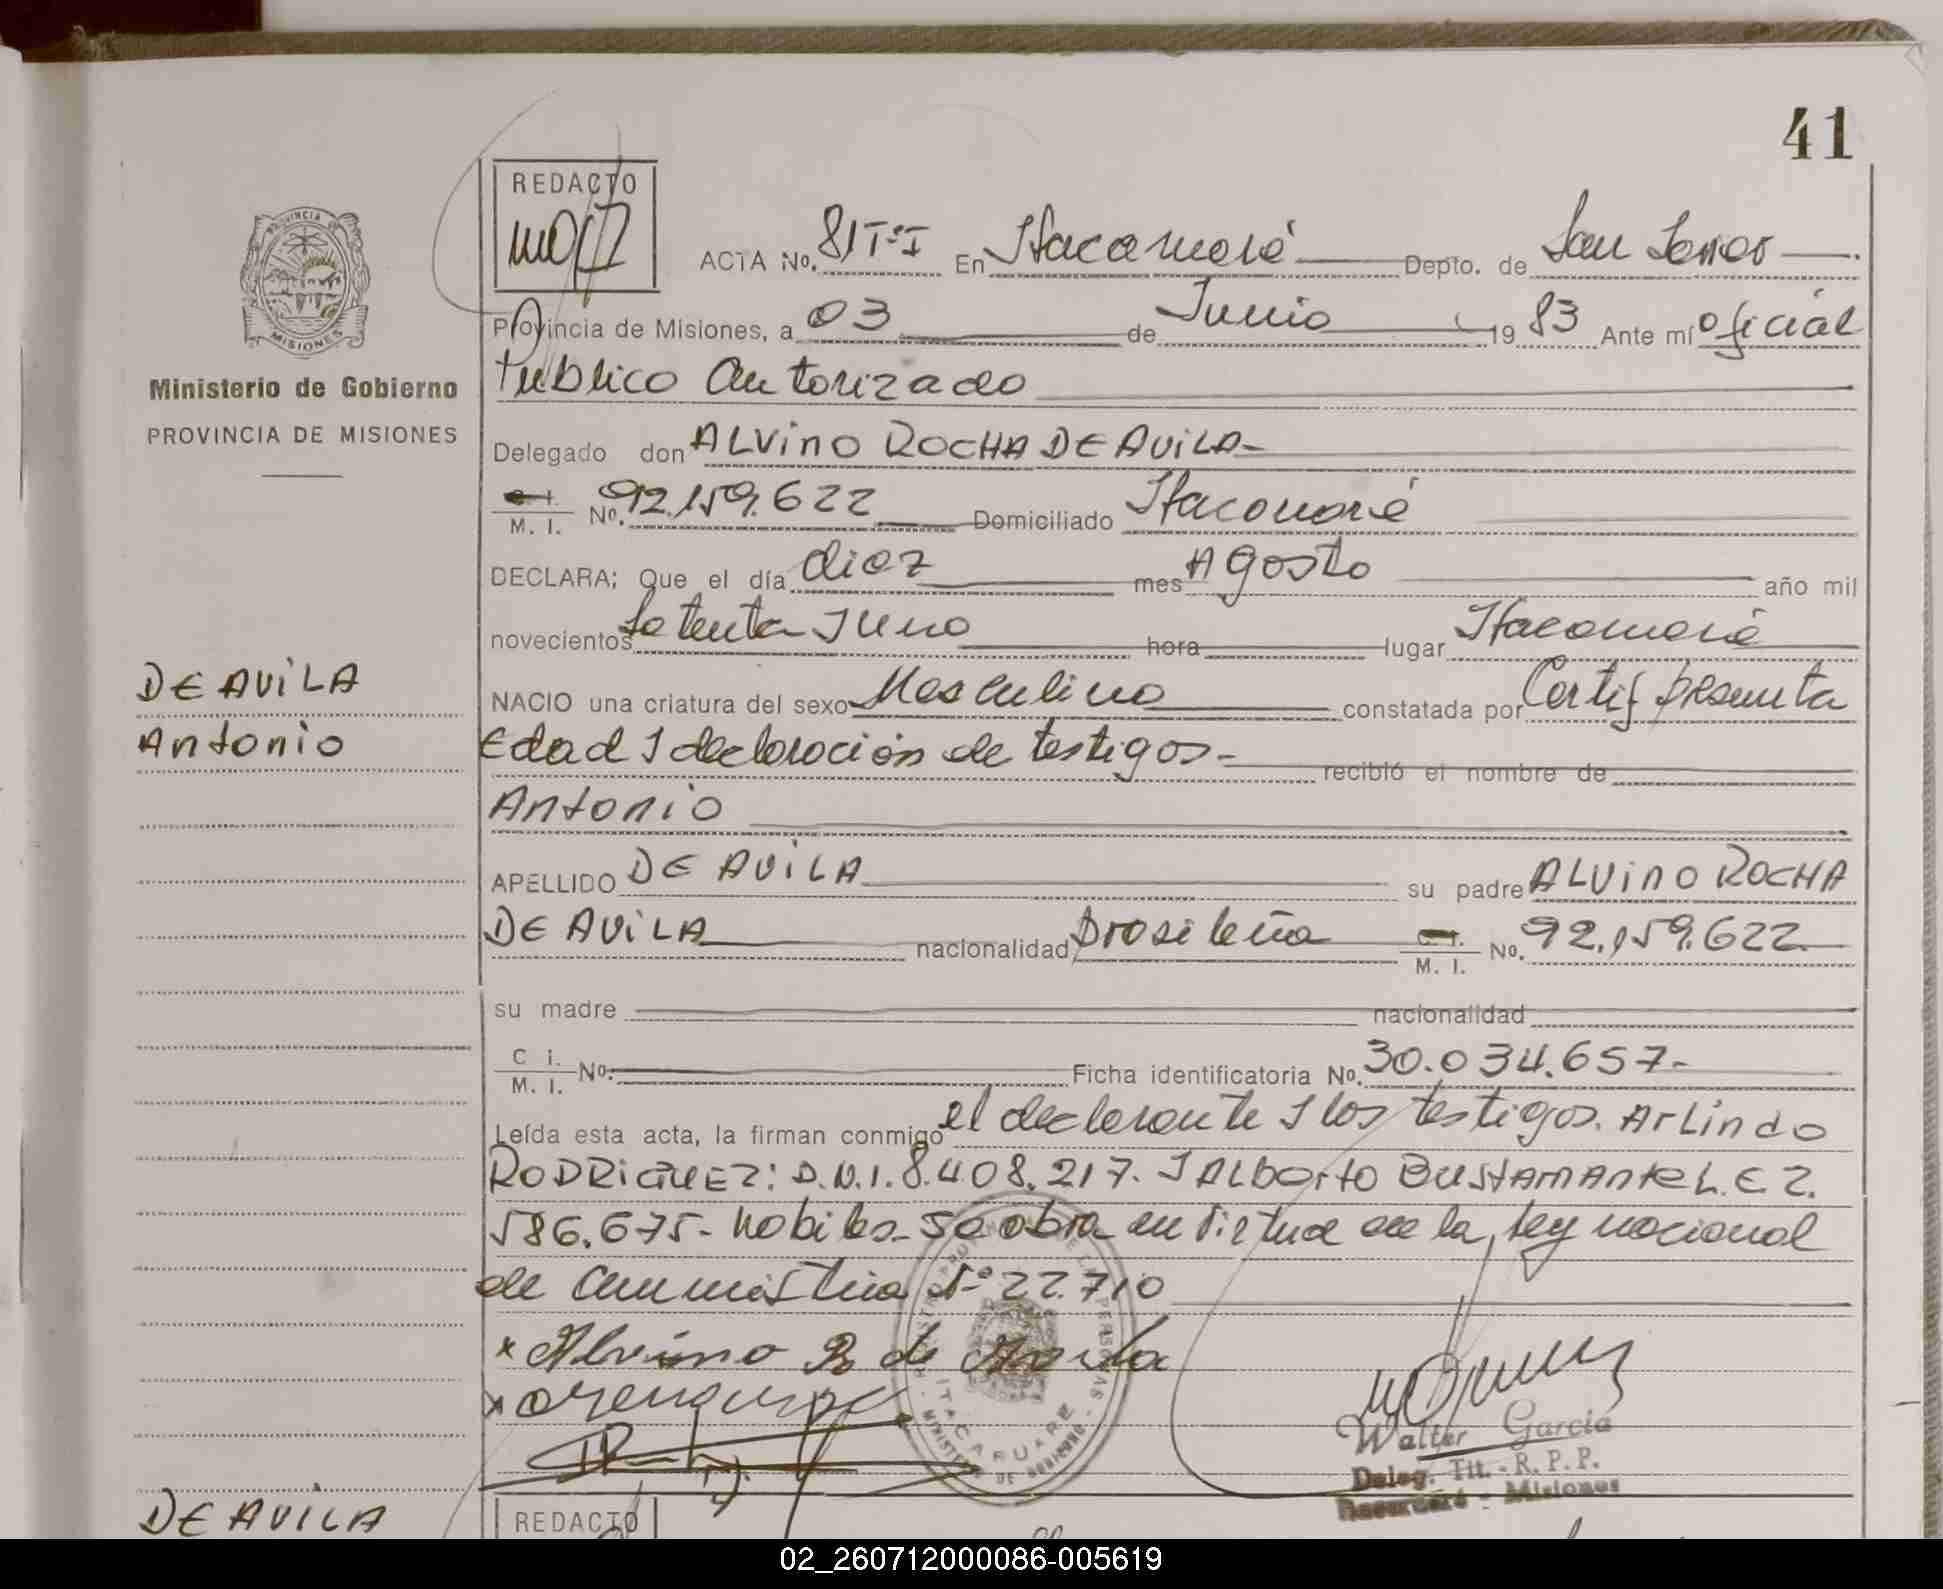 41
REDACTO
PROVINCIA
MISIONES
Ministerio de Gobierno
PROVINCIA DE MISIONES
ACTA No. 81 Tº I En Itacaruaré Depto. de San Javier
Provincia de Misiones, a 03 de Junio 19 83 Ante mí oficial
Publico Autorizado
Delegado don ALVINO ROCHA DE AVILA-
C. I. M. I. No. 92.159.622 Domiciliado Itacaruaré
DECLARA; Que el día diez mes Agosto año mil
novecientos Setenta I uno hora lugar Itacaruaré
DE AVILA
NACIO una criatura del sexo Masculino constatada por Certif presunta
Antonio
Edad I declaración de testigos- recibió el nombre de
Antonio
APELLIDO DE AVILA su padre ALVINO ROCHA
DE AVILA nacionalidad Brasileña C. I. M. I. No. 92.159.622
su madre nacionalidad
C i. M. I. No. Ficha identificatoria No. 30.034.657-
Leída esta acta, la firman conmigo el declarante I los testigos. Arlindo
RODRIGUEZ: D.N.I. 8.408.217. I ALBerto BUSTAMANTE L.E 7.
586.675- habiles- Se obra en virtud de la ley nacional
de Ammistia Nº 22.710
x Alvino R de Avila
REGISTRO PROVINCIAL DE LAS PERSONAS
ITACARUARE
MINISTERIO DE GOBIERNO
Walter Garcia
Deleg. Tit. - R. P. P.
Itacaruaré - Misiones
DE AVILA
REDACTO
02_260712000086-005619